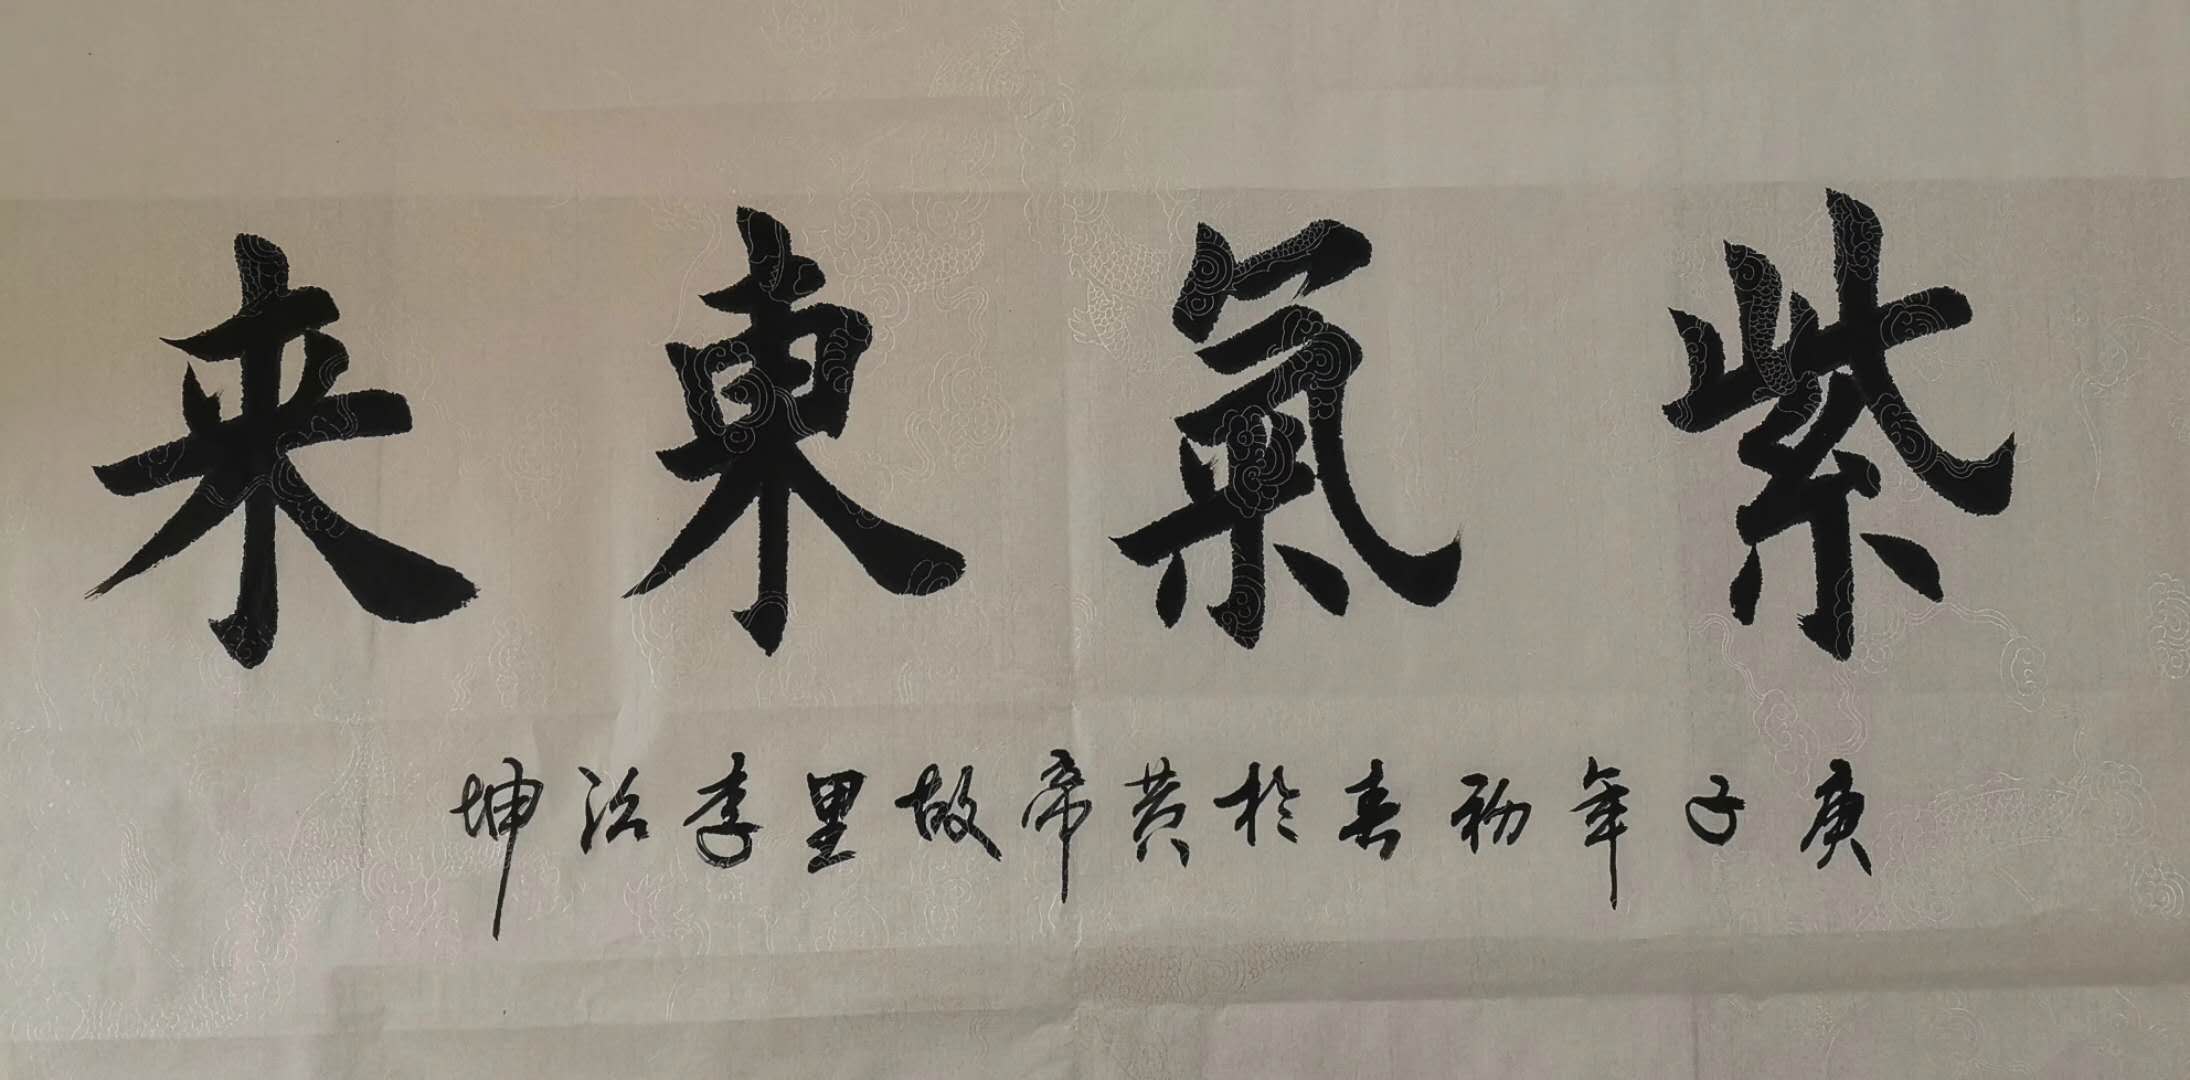 紫氣東来
庚子年初春於黄帝故里李治坤